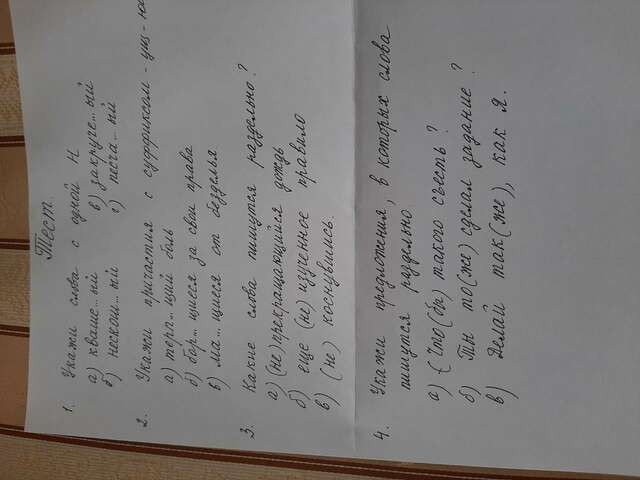 Тест.
1. Укажи слова с одной Н
а) кваше...ый в) закруче...ый
б) нескош...ый г) песча...ый
2. Укажи причастия с суффиксом - ущ - ю
а) терп...щий боль
б) бор...щиеся за свои права
в) ма...щиеся от безделья
3. Какие слова пишутся раздельно?
а) (не) прекращающийся дождь
б) еще (не) изученное правило
в) (не) коснувшись.
4. Укажи предложения, в которых слова
пишутся раздельно.
а) (Что(бы) такого съесть?
б) Ты то(же) сделал задание?
в) Делай так(же), как я.